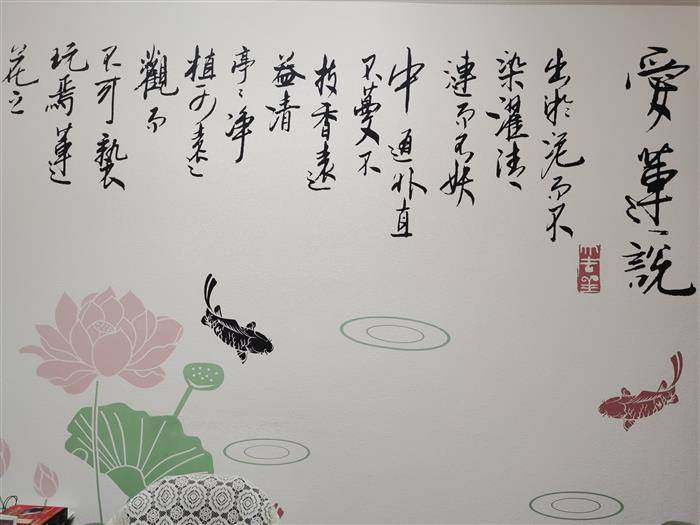 愛蓮說
出於泥而不
染濯清
漣而不妖
中通外直
不蔓不
枝香遠
益清
亭亭净
植可遠
觀而
不可褻
玩焉蓮
花之
大吉羊